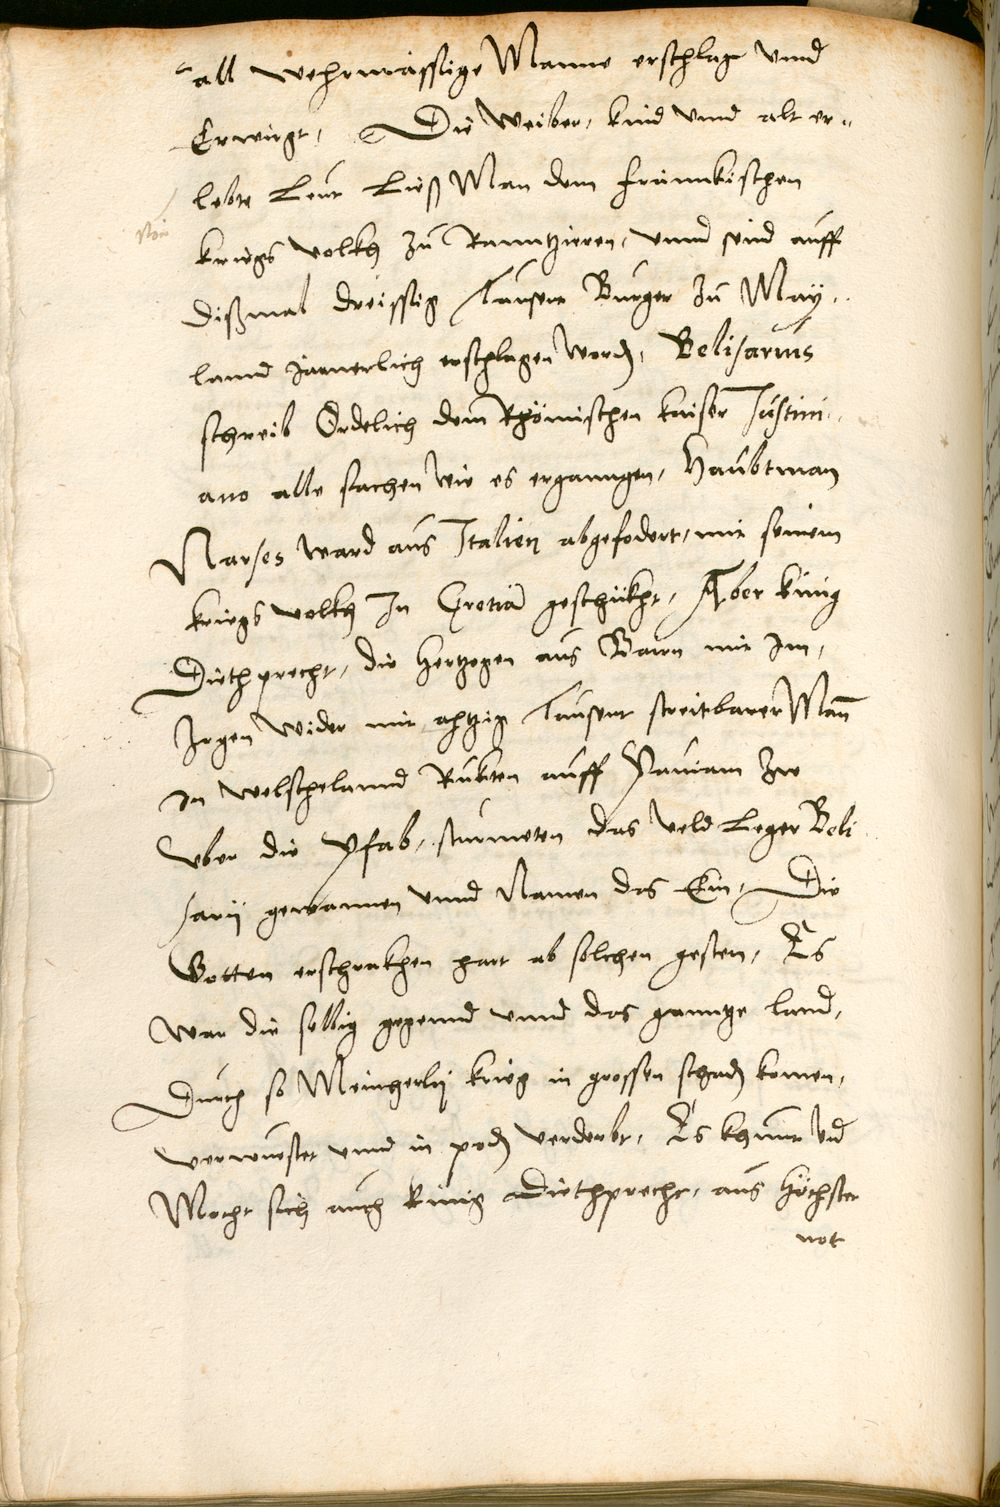 all wehrmässige Manne erschlag vnnd
Erwirgt, Die weiber, kind vnnd alt er-
lebte Leut Ließ Man dem frännkischen
kriegs volkh zu Ranntzieren, vnnd seind auff
dißmal dreissig Tausent Burger zu May-
lannd jämerlich erschlagen word, Belisarius
schreib Ordelich dem Rhömischen kaiser Justini-
ano alle sachen wie es ergangen, Haubtman
Narses ward aus Italien abgefodert, mit seinem
kriegs volkh In Gretia geschikht, Aber künig
Diethprecht, die hertzogen aus Bairn mit Im,
Zogen wider mit achtzig Tausent streitbarer Man
in welschelannd Rukten auff Pauiam zwe
vber die Pfab, sturmeten das veld Leger Beli
sarij gewannen vnnd Namen das Ein, Die
Gotten erschrakhen hart ab solchen gesten, Es
war die selbig gegennd vnnd das ganntze land,
Durch so Meingerley krieg in grossen schad komen,
verwüestet vnnd in pod verderbt, Es khunt vnd
Mocht sich auch künig Diethprecht, aus höchster
not